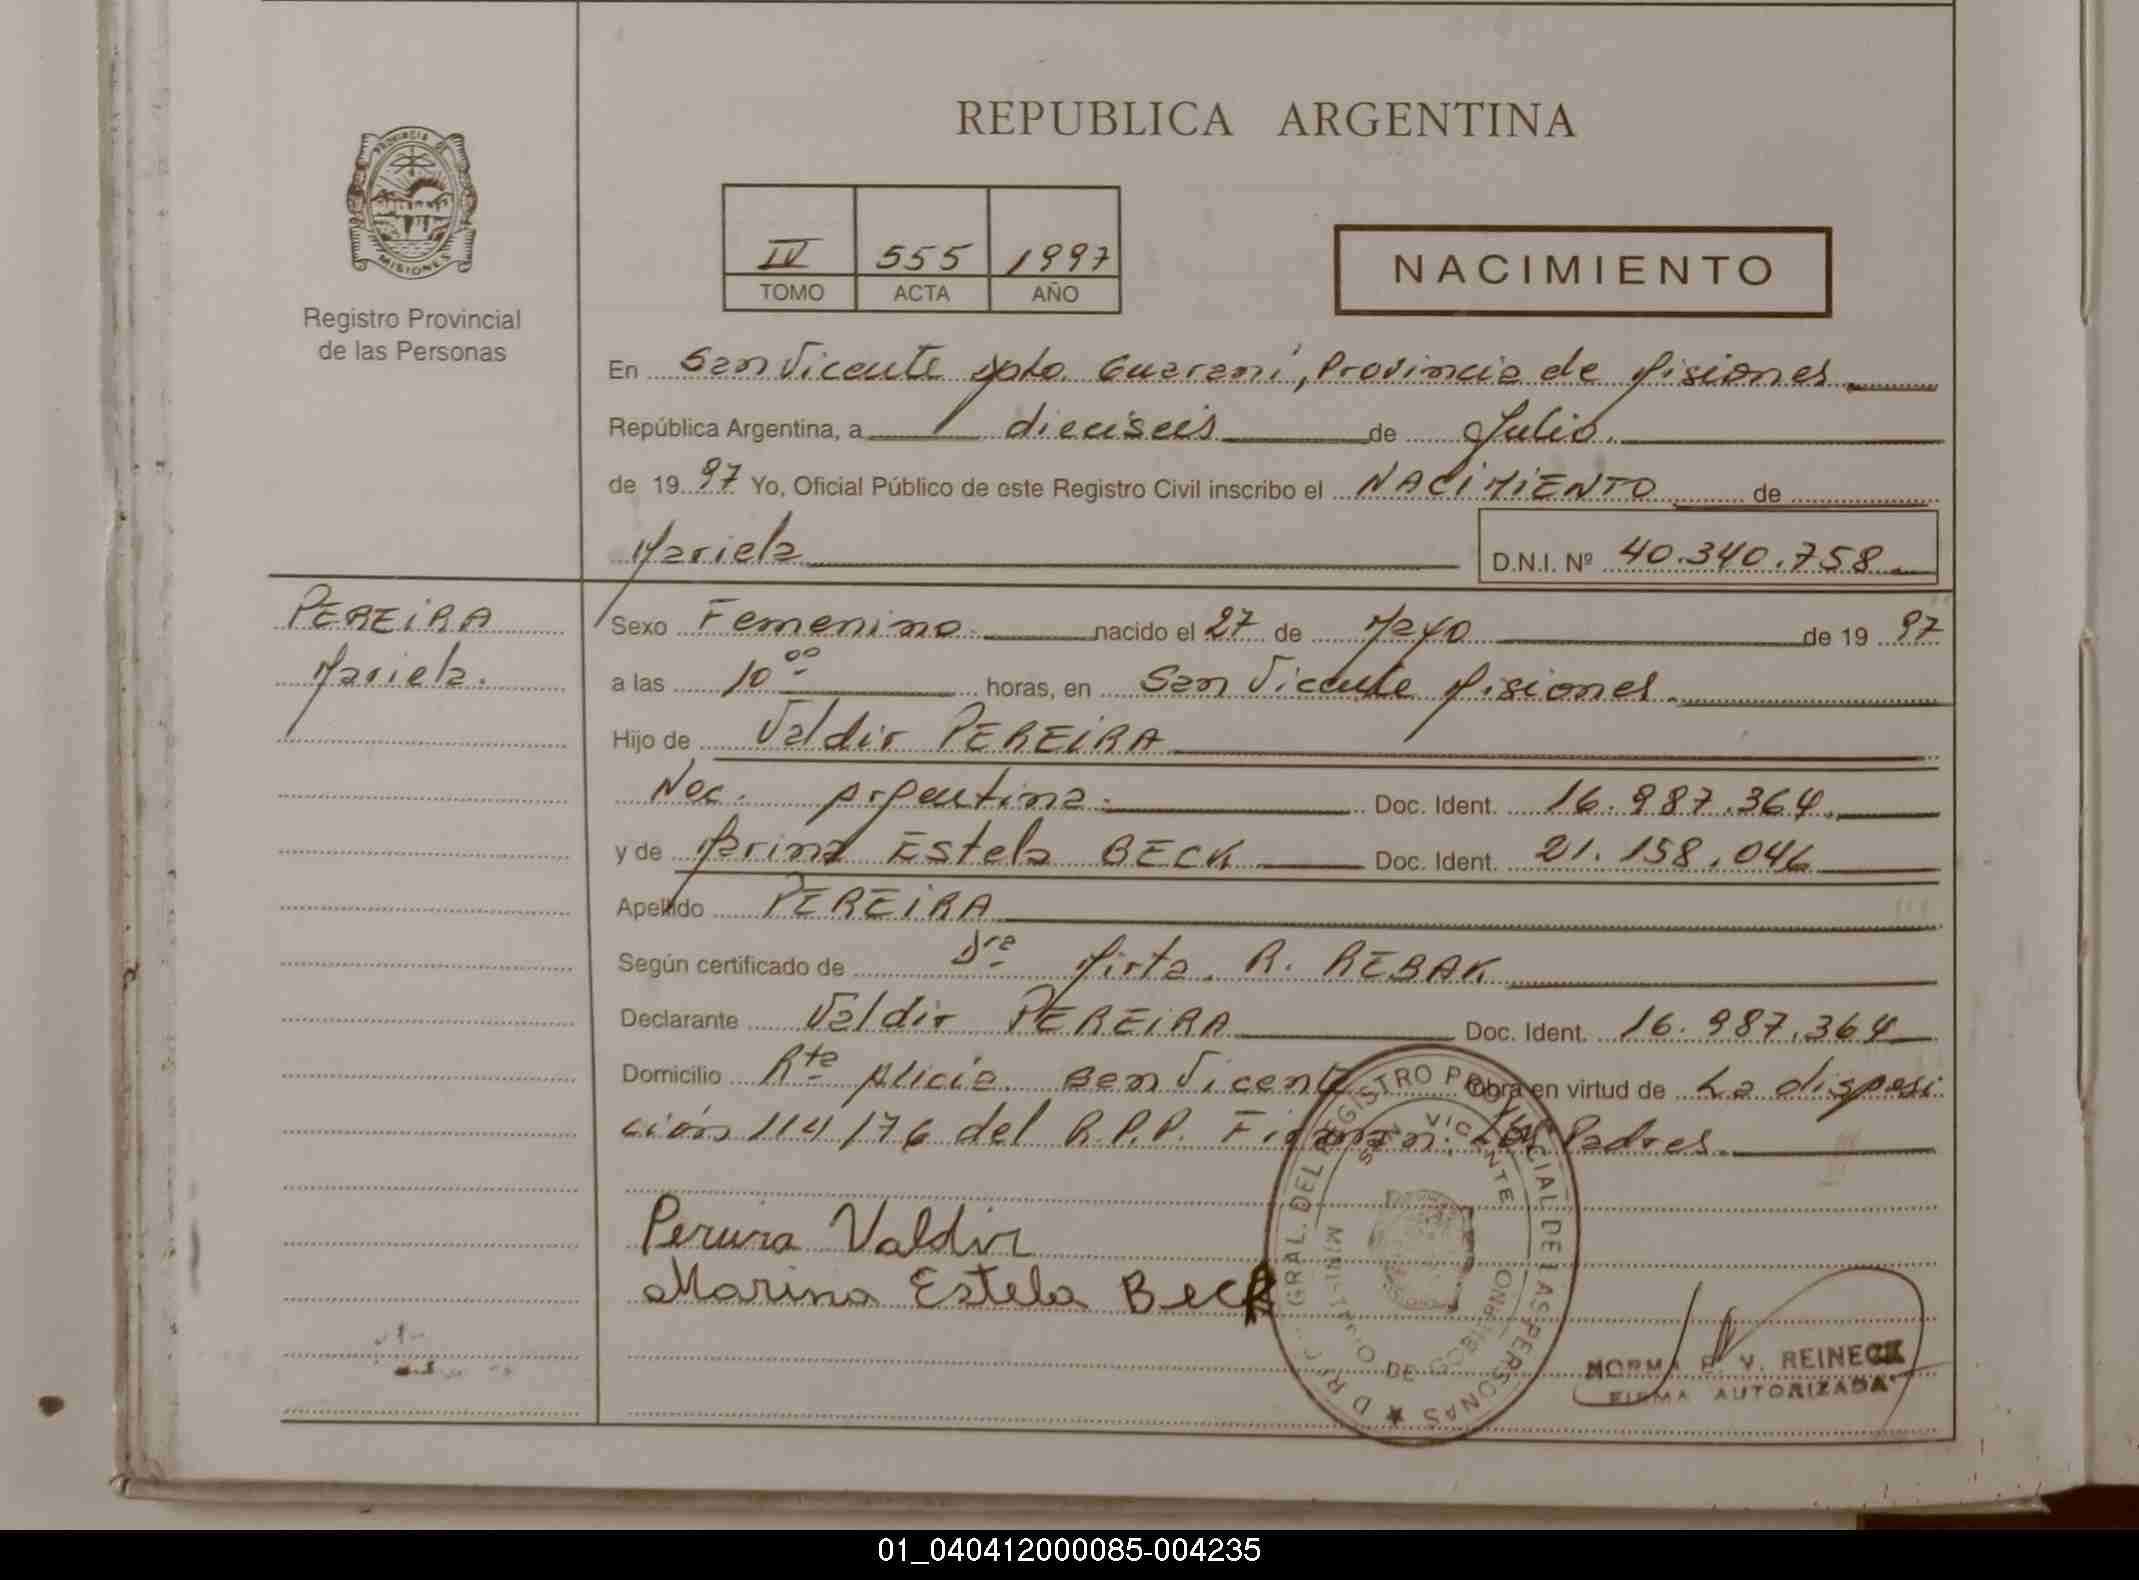 REPUBLICA ARGENTINA
PROVINCIA DE
MISIONES
Registro Provincial
de las Personas
IV 555 1997
TOMO ACTA AÑO
NACIMIENTO
En San Vicente Dpto. Guaraní, Provincia de Misiones
República Argentina, a dieciseis de Julio.
de 19 97 Yo, Oficial Público de este Registro Civil inscribo el NACIMIENTO de
Mariela
D.N.I. Nº 40.340.758.
PEREIRA
Mariela.
Sexo Femenino. nacido el 27 de Mayo de 19 97
a las 10 00 horas, en San Vicente Misiones.
Hijo de Valdir PEREIRA
Nac. Argentina. Doc. Ident. 16.987.364.
y de Marina Estela BECK Doc. Ident. 21.158.046
Apellido PEREIRA
Según certificado de Dra Mirta. R. REBAK
Declarante Valdir PEREIRA Doc. Ident. 16.987.364
Domicilio Rta Alicia San Vicente Obra en virtud de La disposi
ción 114/76 del R.P.P. Firman: Los Padres.
Pereira Valdir
Marina Estela Beck
GRAL. DEL REGISTRO PROVINCIAL DE LAS PERSONAS
SAN VICENTE
DE GOBIERNO
NORMA V. REINECK
FIRMA AUTORIZADA
01_040412000085-004235